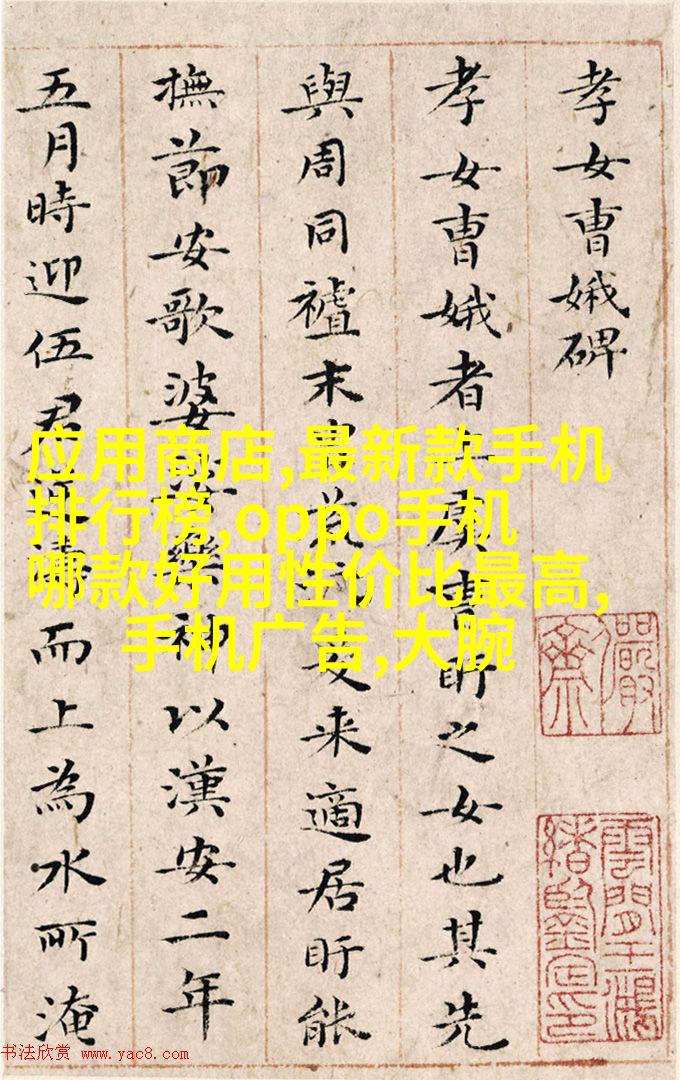 孝女曹娥碑
孝女曹娥者虞曹盱之女也其先
與周同末荒来適居盱能
撫節安歌婆娑樂神以漢安二年
五月時迎伍君逆濤而上為水所淹
儼齋
雲間王鴻緒鑒定印
应用商店,最新款手机
排行榜,oppo手机
哪款好用性价比最高,
手机广告,大腕
书法欣赏 www.yac8.com